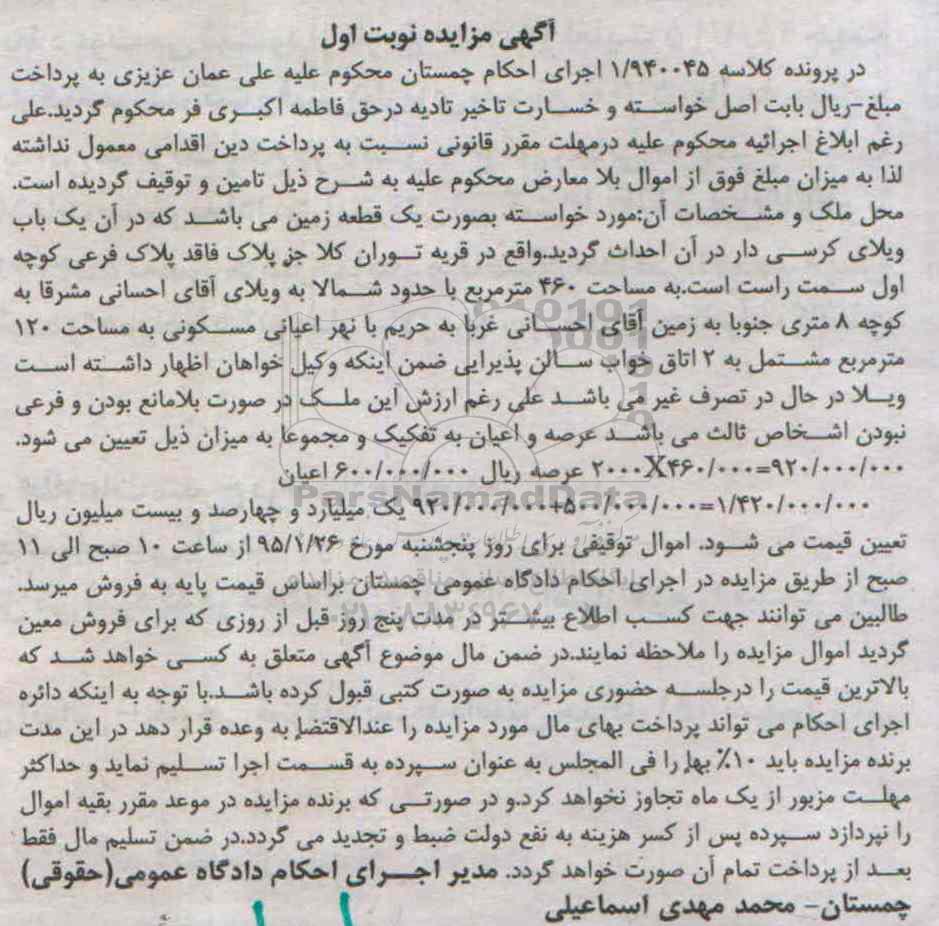 آگهی مزایده نوبت اول
در پرونده کلاسه ۱/۹۴۰۰۴۵ اجرای احکام چمستان محکوم علیه علی عمان عزیزی به پرداخت
مبلغ-ریال بابت اصل خواسته و خسارت تاخیر تادیه درحق فاطمه اکبری فر محکوم گردید.علی
رغم ابلاغ اجرائیه محکوم علیه درمهلت مقرر قانونی نسبت به پرداخت دین اقدامی معمول نداشته
لذا به میزان مبلغ فوق از اموال بلا معارض محکوم علیه به شرح ذیل تامین و توقیف گردیده است.
محل ملک و مشخصات آن:مورد خواسته بصورت یک قطعه زمین می باشد که در آن یک باب
ویلای کرسی دار در آن احداث گردید.واقع در قریه توران کلا جز پلاک فاقد پلاک فرعی کوچه
اول سمت راست است.به مساحت ۴۶۰ مترمربع با حدود شمالا به ویلای آقای احسانی مشرقا به
کوچه ۸ متری جنوبا به زمین آقای احسانی غربا به حریم با نهر اعیانی مسکونی به مساحت ۱۲۰
مترمربع مشتمل به ۲ اتاق خواب سالن پذیرایی ضمن اینکه وکیل خواهان اظهار داشته است
ویلا در حال در تصرف غیر می باشد علی رغم ارزش این ملک در صورت بلامانع بودن و فرعی
نبودن اشخاص ثالث می باشد عرصه و اعیان به تفکیک و مجموعا به میزان ذیل تعیین می شود.
۲۰۰۰X۴۶۰/۰۰۰=۹۲۰/۰۰۰/۰۰۰ عرصه ریال ۶۰۰/۰۰۰/۰۰۰ اعیان
۹۲۰/۰۰۰/۰۰۰+۵۰۰/۰۰۰/۰۰۰=۱/۴۲۰/۰۰۰/۰۰۰ یک میلیارد و چهارصد و بیست میلیون ریال
تعیین قیمت می شود. اموال توقیفی برای روز پنجشنبه مورخ ۹۵/۱/۲۶ از ساعت ۱۰ صبح الی ۱۱
صبح از طریق مزایده در اجرای احکام دادگاه عمومی چمستان براساس قیمت پایه به فروش میرسد.
طالبین می توانند جهت کسب اطلاع بیشتر در مدت پنج روز قبل از روزی که برای فروش معین
گردید اموال مزایده را ملاحظه نمایند.در ضمن مال موضوع آگهی متعلق به کسی خواهد شد که
بالاترین قیمت را درجلسه حضوری مزایده به صورت کتبی قبول کرده باشد.با توجه به اینکه دائره
اجرای احکام می تواند پرداخت بهای مال مورد مزایده را عندالاقتضا به وعده قرار دهد در این مدت
برنده مزایده باید ۱۰٪ بها را فی المجلس به عنوان سپرده به قسمت اجرا تسلیم نماید و حداکثر
مهلت مزبور از یک ماه تجاوز نخواهد کرد.و در صورتی که برنده مزایده در موعد مقرر بقیه اموال
را نپردازد سپرده پس از کسر هزینه به نفع دولت ضبط و تجدید می گردد.در ضمن تسلیم مال فقط
بعد از پرداخت تمام آن صورت خواهد گردد. مدیر اجرای احکام دادگاه عمومی(حقوقی)
چمستان- محمد مهدی اسماعیلی
ParsNamadData